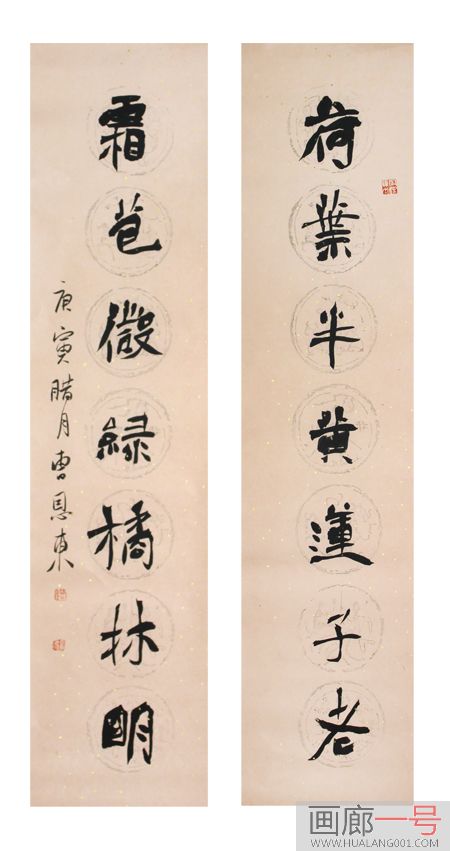 荷葉半黄蓮子老
霜苞微緑橘林明
庚寅腊月曹恩東
画廊一号
WWW.HUALANG001.COM